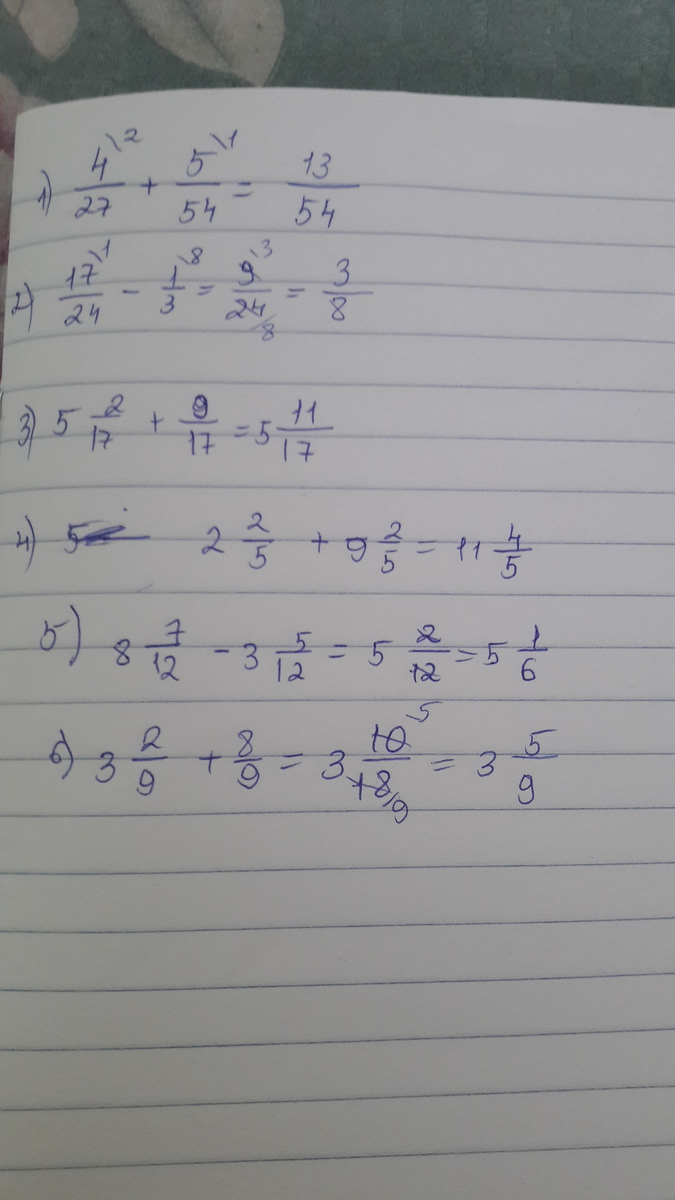 1) 4\2/27 + 5\1/54 = 13/54
2) 17\1/24 - 1\8/3 = 9\3/24/8 = 3/8
3) 5 2/17 + 9/17 = 5 11/17
4) 2 2/5 + 9 2/5 = 11 4/5
5) 8 7/12 - 3 5/12 = 5 2/12 = 5 1/6
6) 3 2/9 + 8/9 = 3 10\5/18/9 = 3 5/9